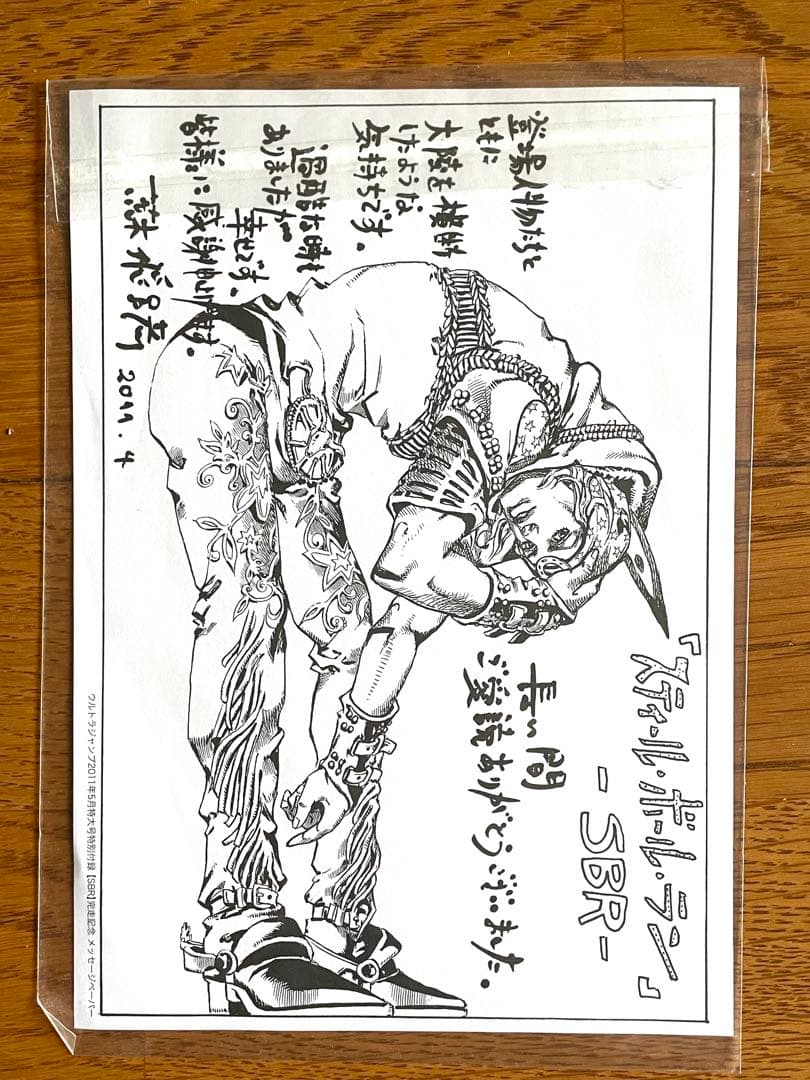 『スティール・ボール・ラン』
-SBR-
長い間
ご愛読ありがとうございました。
登場人物たちと
ともに
大陸を横断
したような
気持ちです。
過酷な時も
ありましたが
幸せです。
皆様に感謝申し上げます。
荒木飛呂彦 2011.4
ウルトラジャンプ2011年5月特大号特別付録【SBR】完走記念 メッセージペーパー